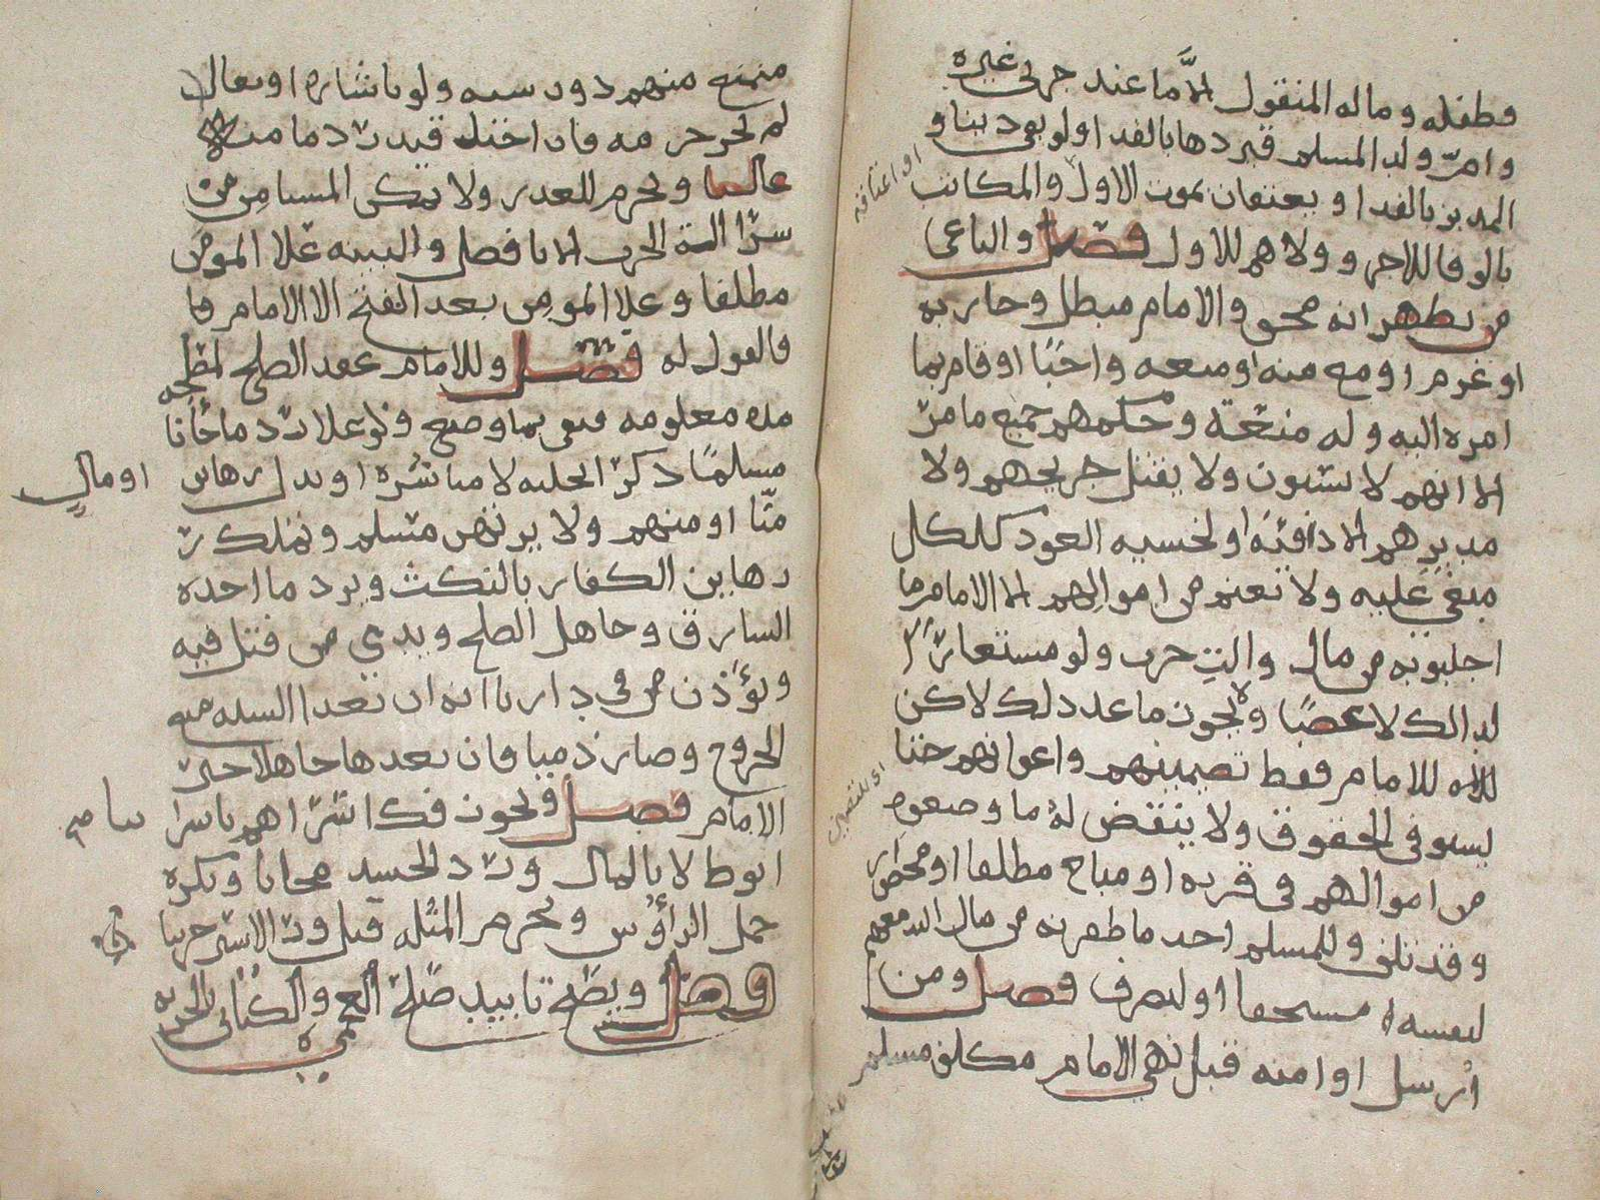 وطفله وماله المنقول الا ما عند حربي غيره
وام ولد المسلم فيردها بالفدا ولو بقي دينا و
المدبر بالفدا ويعتقان بموت الاول والمكاتب
او اعتاقه
بالوفا للاخر وولاهم للاول فصل والباغي
من يظهر انه محق والامام مبطل وحاربه
او عزم او منع منه او منعه واجبا او قام بما
امره اليه وله منعة وحكمهم جميع ما مر
الا انهم لا يسبون ولا يقتل جريحهم ولا
مدبرهم الا ذا فئة او لخشية العود كلكل
مبغي عليه ولا يغنم من اموالهم الا الامام ما
اجلبوا به من مال والت حرب ولو مستعارا
لذالك لا غصبا ولا يجوز ما عدا ذلك لاكن
للامام فقط تضمينهم واعوانهم حتا
يستوفي الحقوق ولا ينقض له ما وضعوه
من اموالهم في قربه او مباح مطلقا او محظور
وقد تلف وللمسلم اخذ ما ظفر به من مال الله معهم
لنفسه مستحقا او ليصرف فصل ومن
ارسل او امنه قبل نهي الامام مكلف مسلم
متمنع منهم دون سنه ولو باشاره او تعال
لم يجز خرمه فان اختل قيد رد ما منه
غالبا ويحرم للغدر ولا يمكن المستامن من
شرا الة الحرب الا بافضل والبينه علا المومن
مطلقا وعلا المومن بعد الفتح الا الامام فا
فالقول له فصل وللامام عقد الصلح لمصلحه
مده معلومه فيفي بما وضع ولو علا رد من جانا
مسلما ذكرا تخليه لا مباشره او بذل رهاين
او مال
منا او منهم ولا يرتهن مسلم وتملك ر
رهاين الكفار بالنكث ويرد ما اخذه
السارق وجاهل الصلح ويدي من قتل فيه
ويؤذن من في دارنا انه ان تعدا السنه منع
الخروج وصار ذميا فان تعدها جاهلا خير
الامام فصل ويجوز فك اسراهم باسرا
انوط لا بالمال ورد الجسد مجانا ويكره
حمل الرأوس وتحرم المثله قيل ورد الاسير حربيا
فصل ويصح تابيد صلح العجمي والكتابي بالجزيه